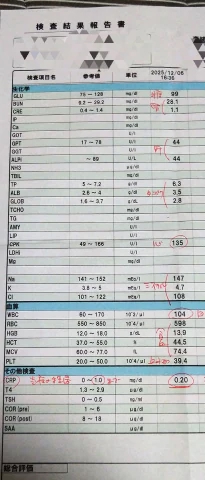 検査結果報告書
検査項目名 参考値 単位 2025/12/06
16:35
生化学
GLU 75 ~ 128 mg/dl 99
BUN 9.2 ~ 29.2 mg/dl 28.1
CRE 0.4 ~ 1.4 mg/dl 1.1
IP mg/dl
Ca mg/dl
GOT U/l
GPT 17 ~ 78 U/l 44
GGT U/l
ALPi ~ 89 U/L 44
NH3 μg/dl
TBIL mg/dl
TP 5 ~ 7.2 g/dl 6.3
ALB 2.6 ~ 4 g/dl 3.5
GLOB 1.6 ~ 3.7 g/dL 2.8
TCHO mg/dl
TG mg/dl
AMY U/l
LIP U/l
CPK 49 ~ 166 U/l 135
LDHi U/l
Mg mg/dl
Na 141 ~ 152 mEq/l 147
K 3.8 ~ 5 mEq/l 4.7
Cl 101 ~ 122 mEq/l 108
血算
WBC 60 ~ 170 10^2/μl 104
RBC 550 ~ 850 10^4/μl 598
HGB 12.0 ~ 18.0 g/dl 13.9
HCT 37.0 ~ 55.0 % 44.5
MCV 60.0 ~ 77.0 fL 74.4
PLT 20.0 ~ 50.0 10^4/μl 39.4
その他検査
CRP 0 ~ 1.0 mg/dl 0.20
T4 1.3 ~ 2.9 μg/dl
TSH 0 ~ 0.5 ng/ml
COR(pre) 1 ~ 6 μg/dl
COR(post) 8 ~ 18 μg/dl
SAA μg/dl
総合評価